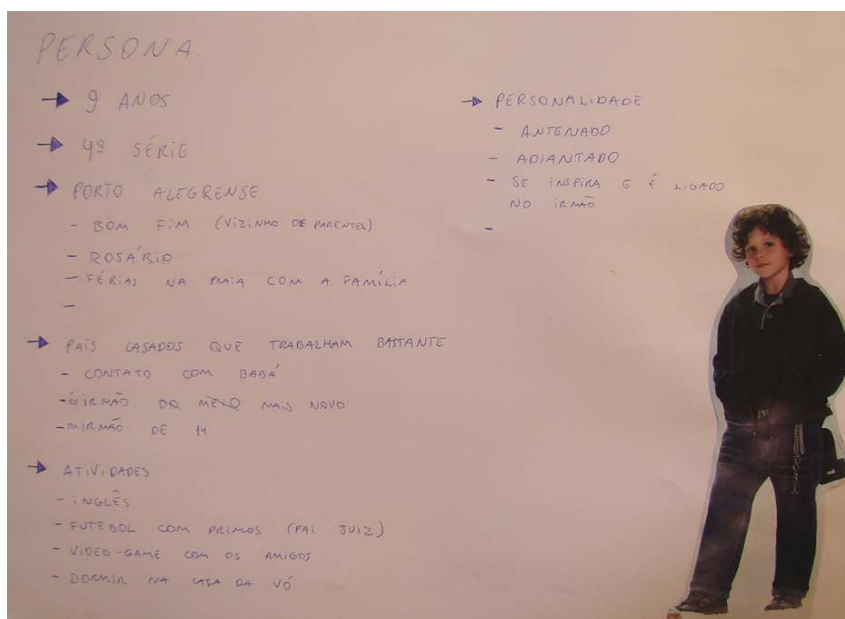 PERSONA.
→ 9 ANOS
→ 4ª SÉRIE
→ PORTO ALEGRENSE
- BOM FIM (VIZINHO DE PARENTES)
- ROSÁRIO
- FÉRIAS NA PRAIA COM A FAMÍLIA
-
→ PAIS CASADOS QUE TRABALHAM BASTANTE
- CONTATO COM BABÁ
- É IRMÃO DO MEIO MAIS NOVO
- IRMÃO DE 14
→ ATIVIDADES
- INGLÊS
- FUTEBOL COM PRIMOS (PAI JUIZ)
- VIDEO-GAME COM OS AMIGOS
- DORMIR NA CASA DA VÓ
→ PERSONALIDADE
- ANTENADO
- ADIANTADO
- SE INSPIRA E É LIGADO
NO IRMÃO
-